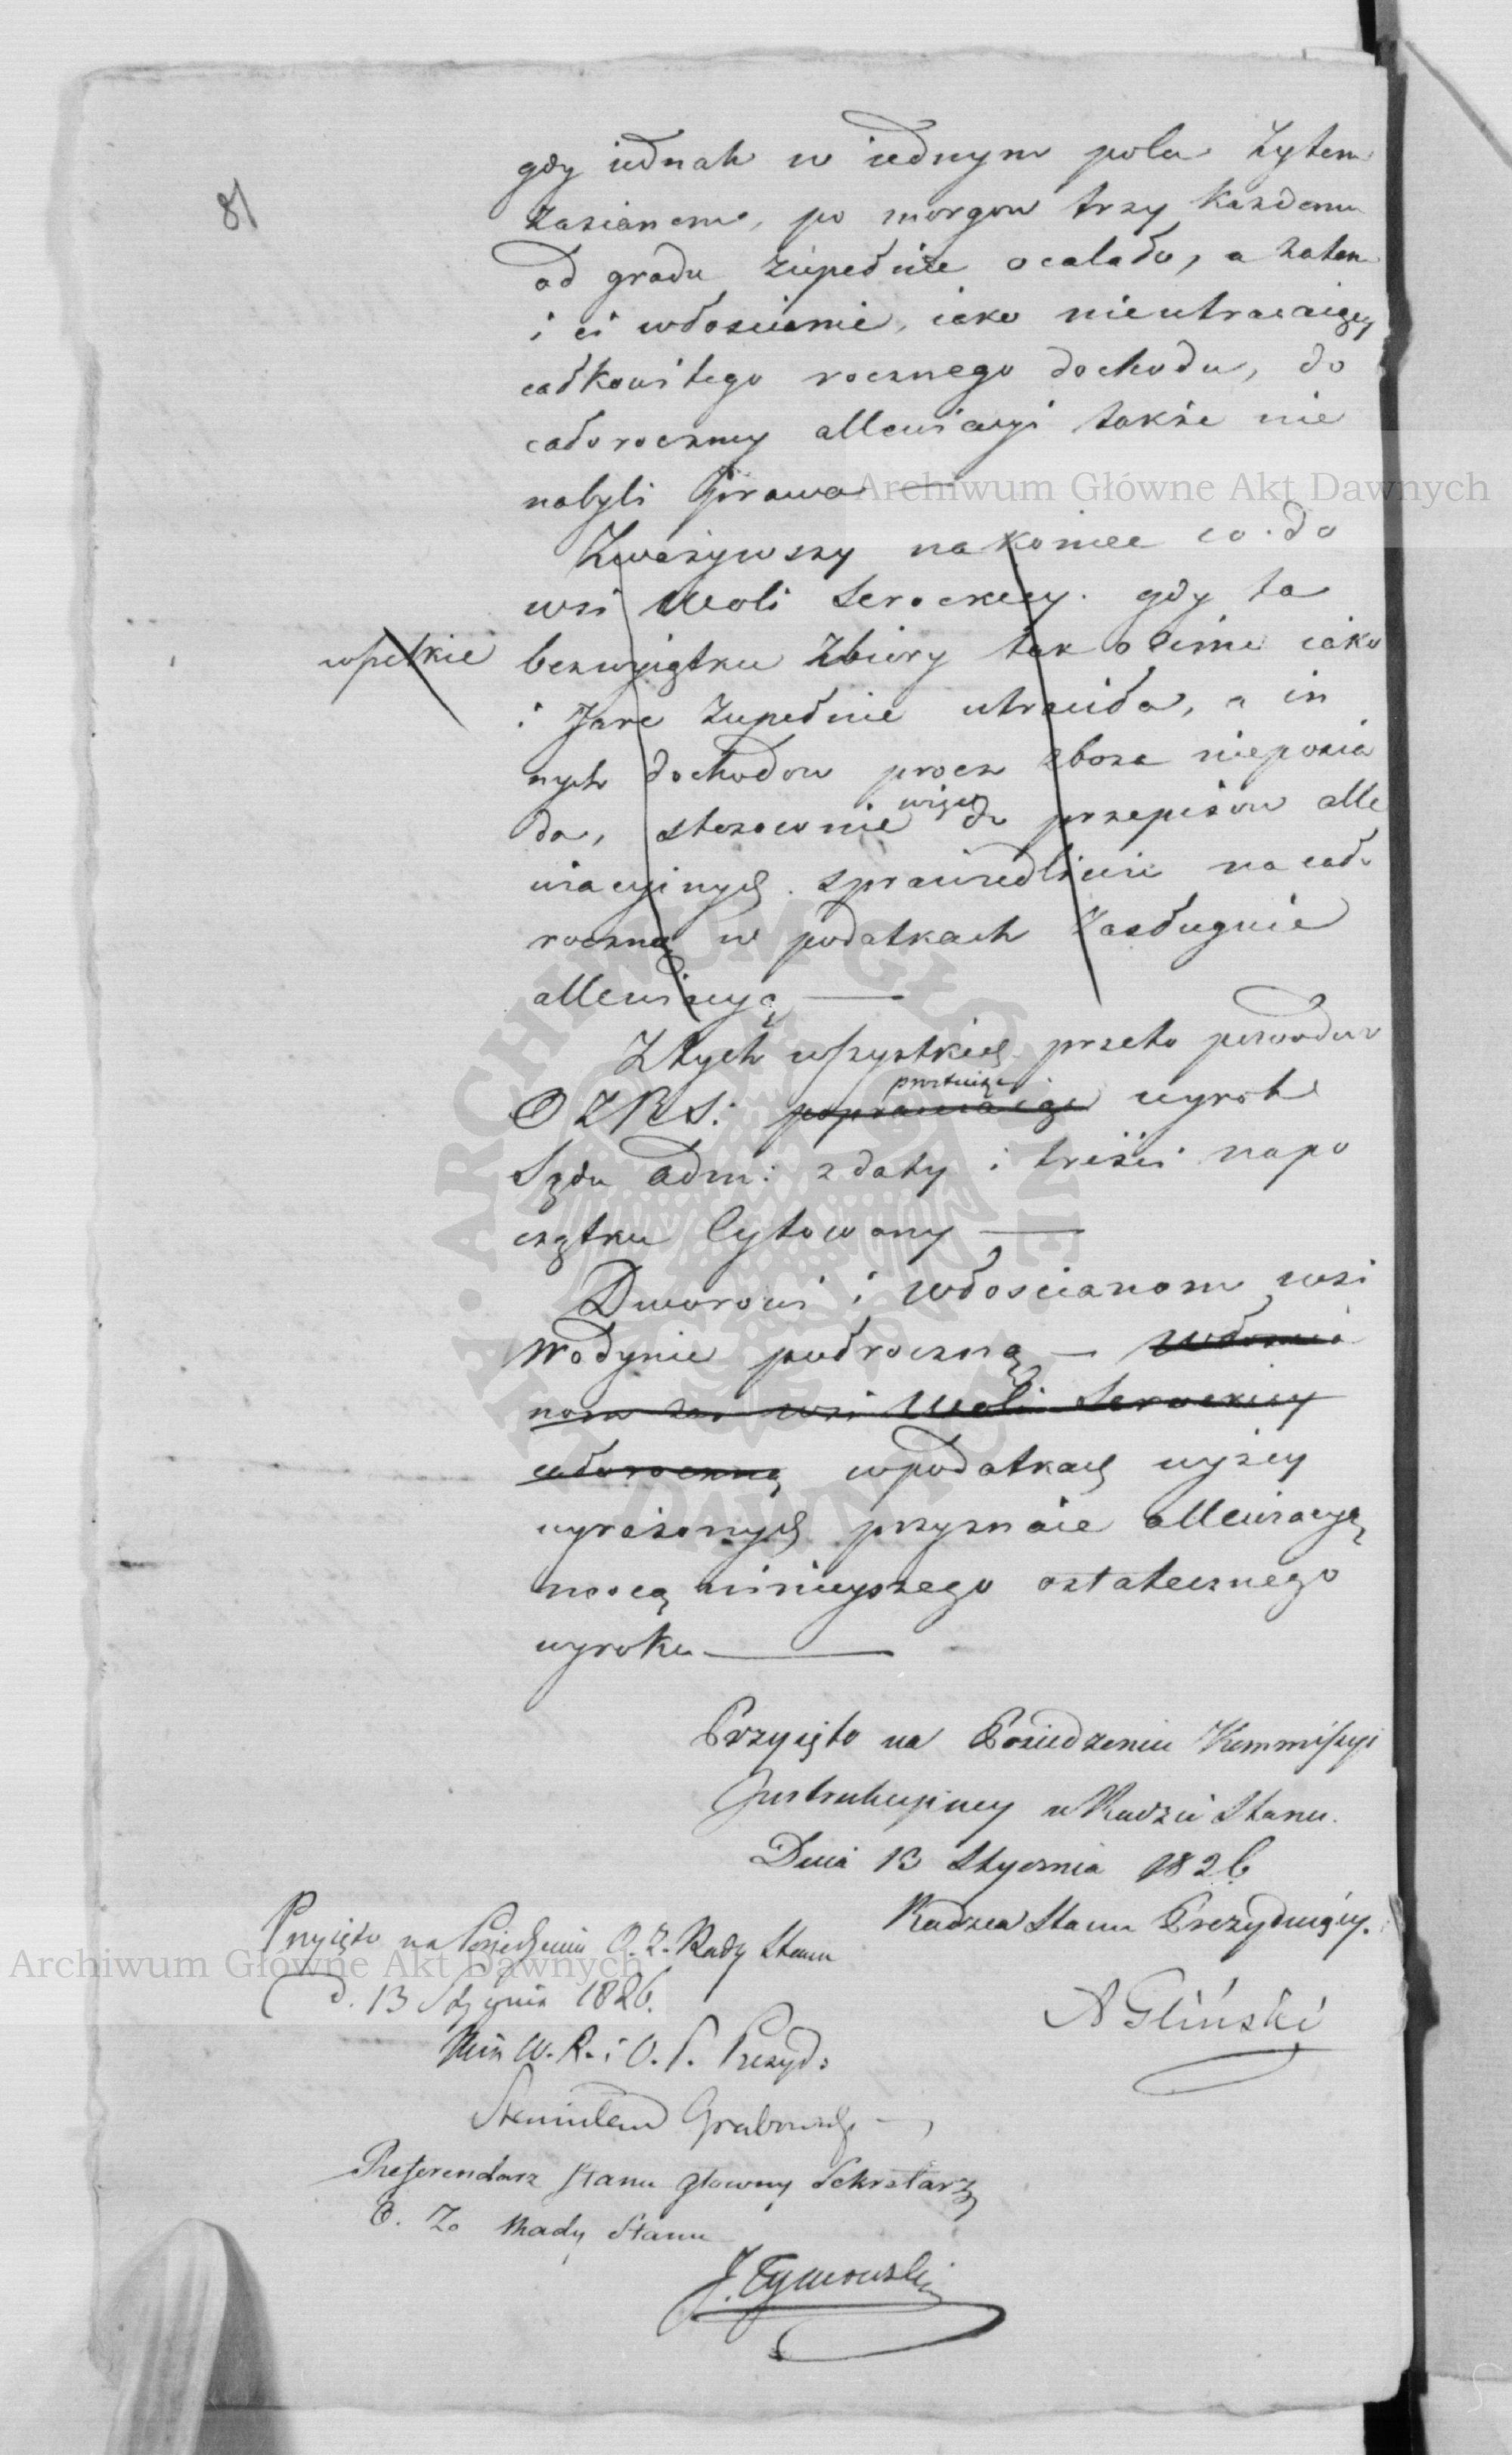 81
gdy iednak w iednym polu żytem
zasianem, po morgow trzy każdemu
od gradu zupełnie ocalało, a zatem
i ci włoscianie, iako nieutracaiący
całkowitego rocznego dochodu, do
całoroczney allewiacyi także nie
nabyli prawa —
Zważywszy nakoniec co do
wsi Woli Serockiey. gdy ta
wszelkie
bezwyiątku zbiory tak ozime iako
i Jare zupełnie utraciła, a in
nych dochodow procz zboża nieposia
da, stosownie więc do przepisow alle
wiacyinych sprawiedliwie na cało
roczną w podatkach zasługuie
allewiacyą —
Z tych wszystkich przeto powodow
O Z R S: poprawiaiąc wyrok
Sądu Adm: z daty i treści napo
czątku Cytowany —
Dworowi i włoscianom wsi
Wodynie pułroczną — włoscia
nom zaś wsi Woli Serockiey
całoroczną wpodatkach wyżey
wyrażonych przyznaie allewiacyą
mocą ninieyszego ostatecznego
wyroku —
Przyięto na Posiedzeniu Kommissyi
Instrukcyiney w Radzie Stanu.
Dnia 13 Stycznia 1826
Radzca Stanu Prezyduiący.
A Gliński
Przyięto na Posiedzeniu O. Z. Rady Stanu
d. 13 Stycznia 1826.
Min W. R. i O. P. Prezyd:
Stanisław Grabowski
Referendarz Stanu główny Sekretarz
O. Z. Rady Stanu
J. Tymowski
Archiwum Główne Akt Dawnych
Archiwum Główne Akt Dawnych
ARCHIWUM GŁÓWNE AKT DAWNYCH